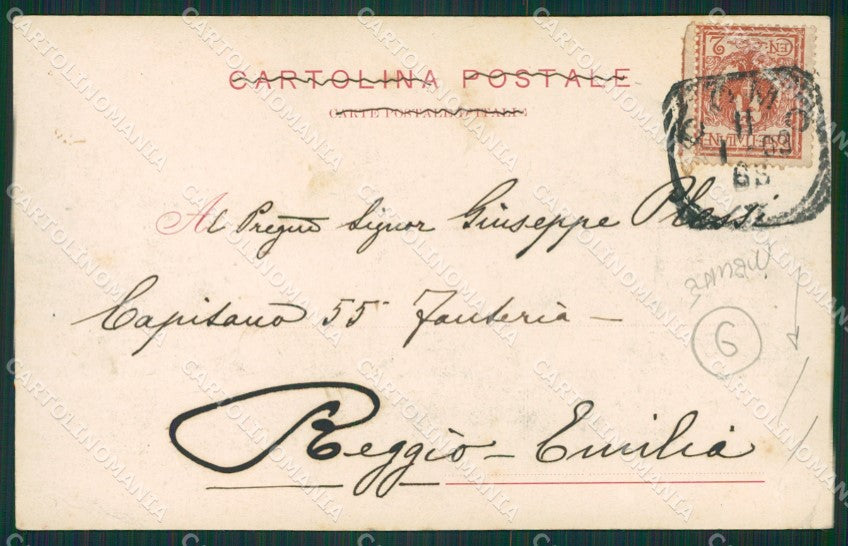 CARTOLINA POSTALE
CARTE POSTALE D'ITALIE
Al Pregmo Signor Giuseppe Plessi
Capitano 55 Fanteria -
Reggio - Emilia
6
CARTOLINOMANIA